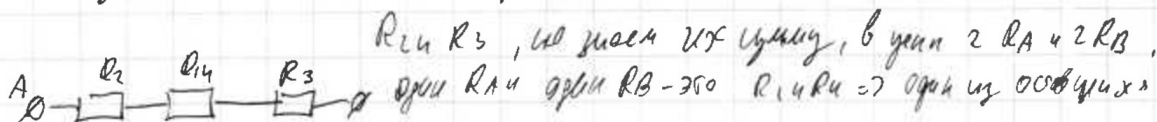 R₂ и R₃, не знаем их сумму, в цепи 2 RA и 2 RB,
A R₂ R₁₄ R₃ один RA и один RB - это R₁ и R₄ => один из оставшихся